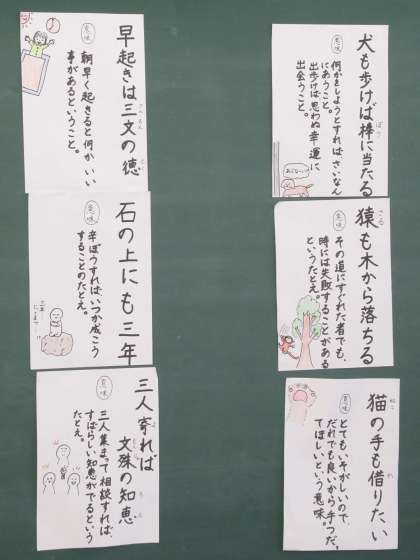 犬も歩けば棒に当たる
ぼう
意味
何かをしようとすれば、さいなん
にあうこと。
出歩けば思わぬ幸運に
出会うこと。
猿も木から落ちる
さる
意味
その道にすぐれた者でも、
時には失敗することがある
というたとえ。
猫の手も借りたい
ねこ
意味
とてもいそがしいので、
だれでも良いから手つだっ
てほしいという意味。
早起きは三文の徳
さんもん
とく
意味
朝早く起きると何かいい
事があるということ。
石の上にも三年
意味
辛ぼうすれば、いつか成こう
することのたとえ。
三人寄れば
よ
文殊の知恵
もんじゅ
ち
え
意味
三人集まって相談すれば、
すばらしい知恵がでるという
たとえ。